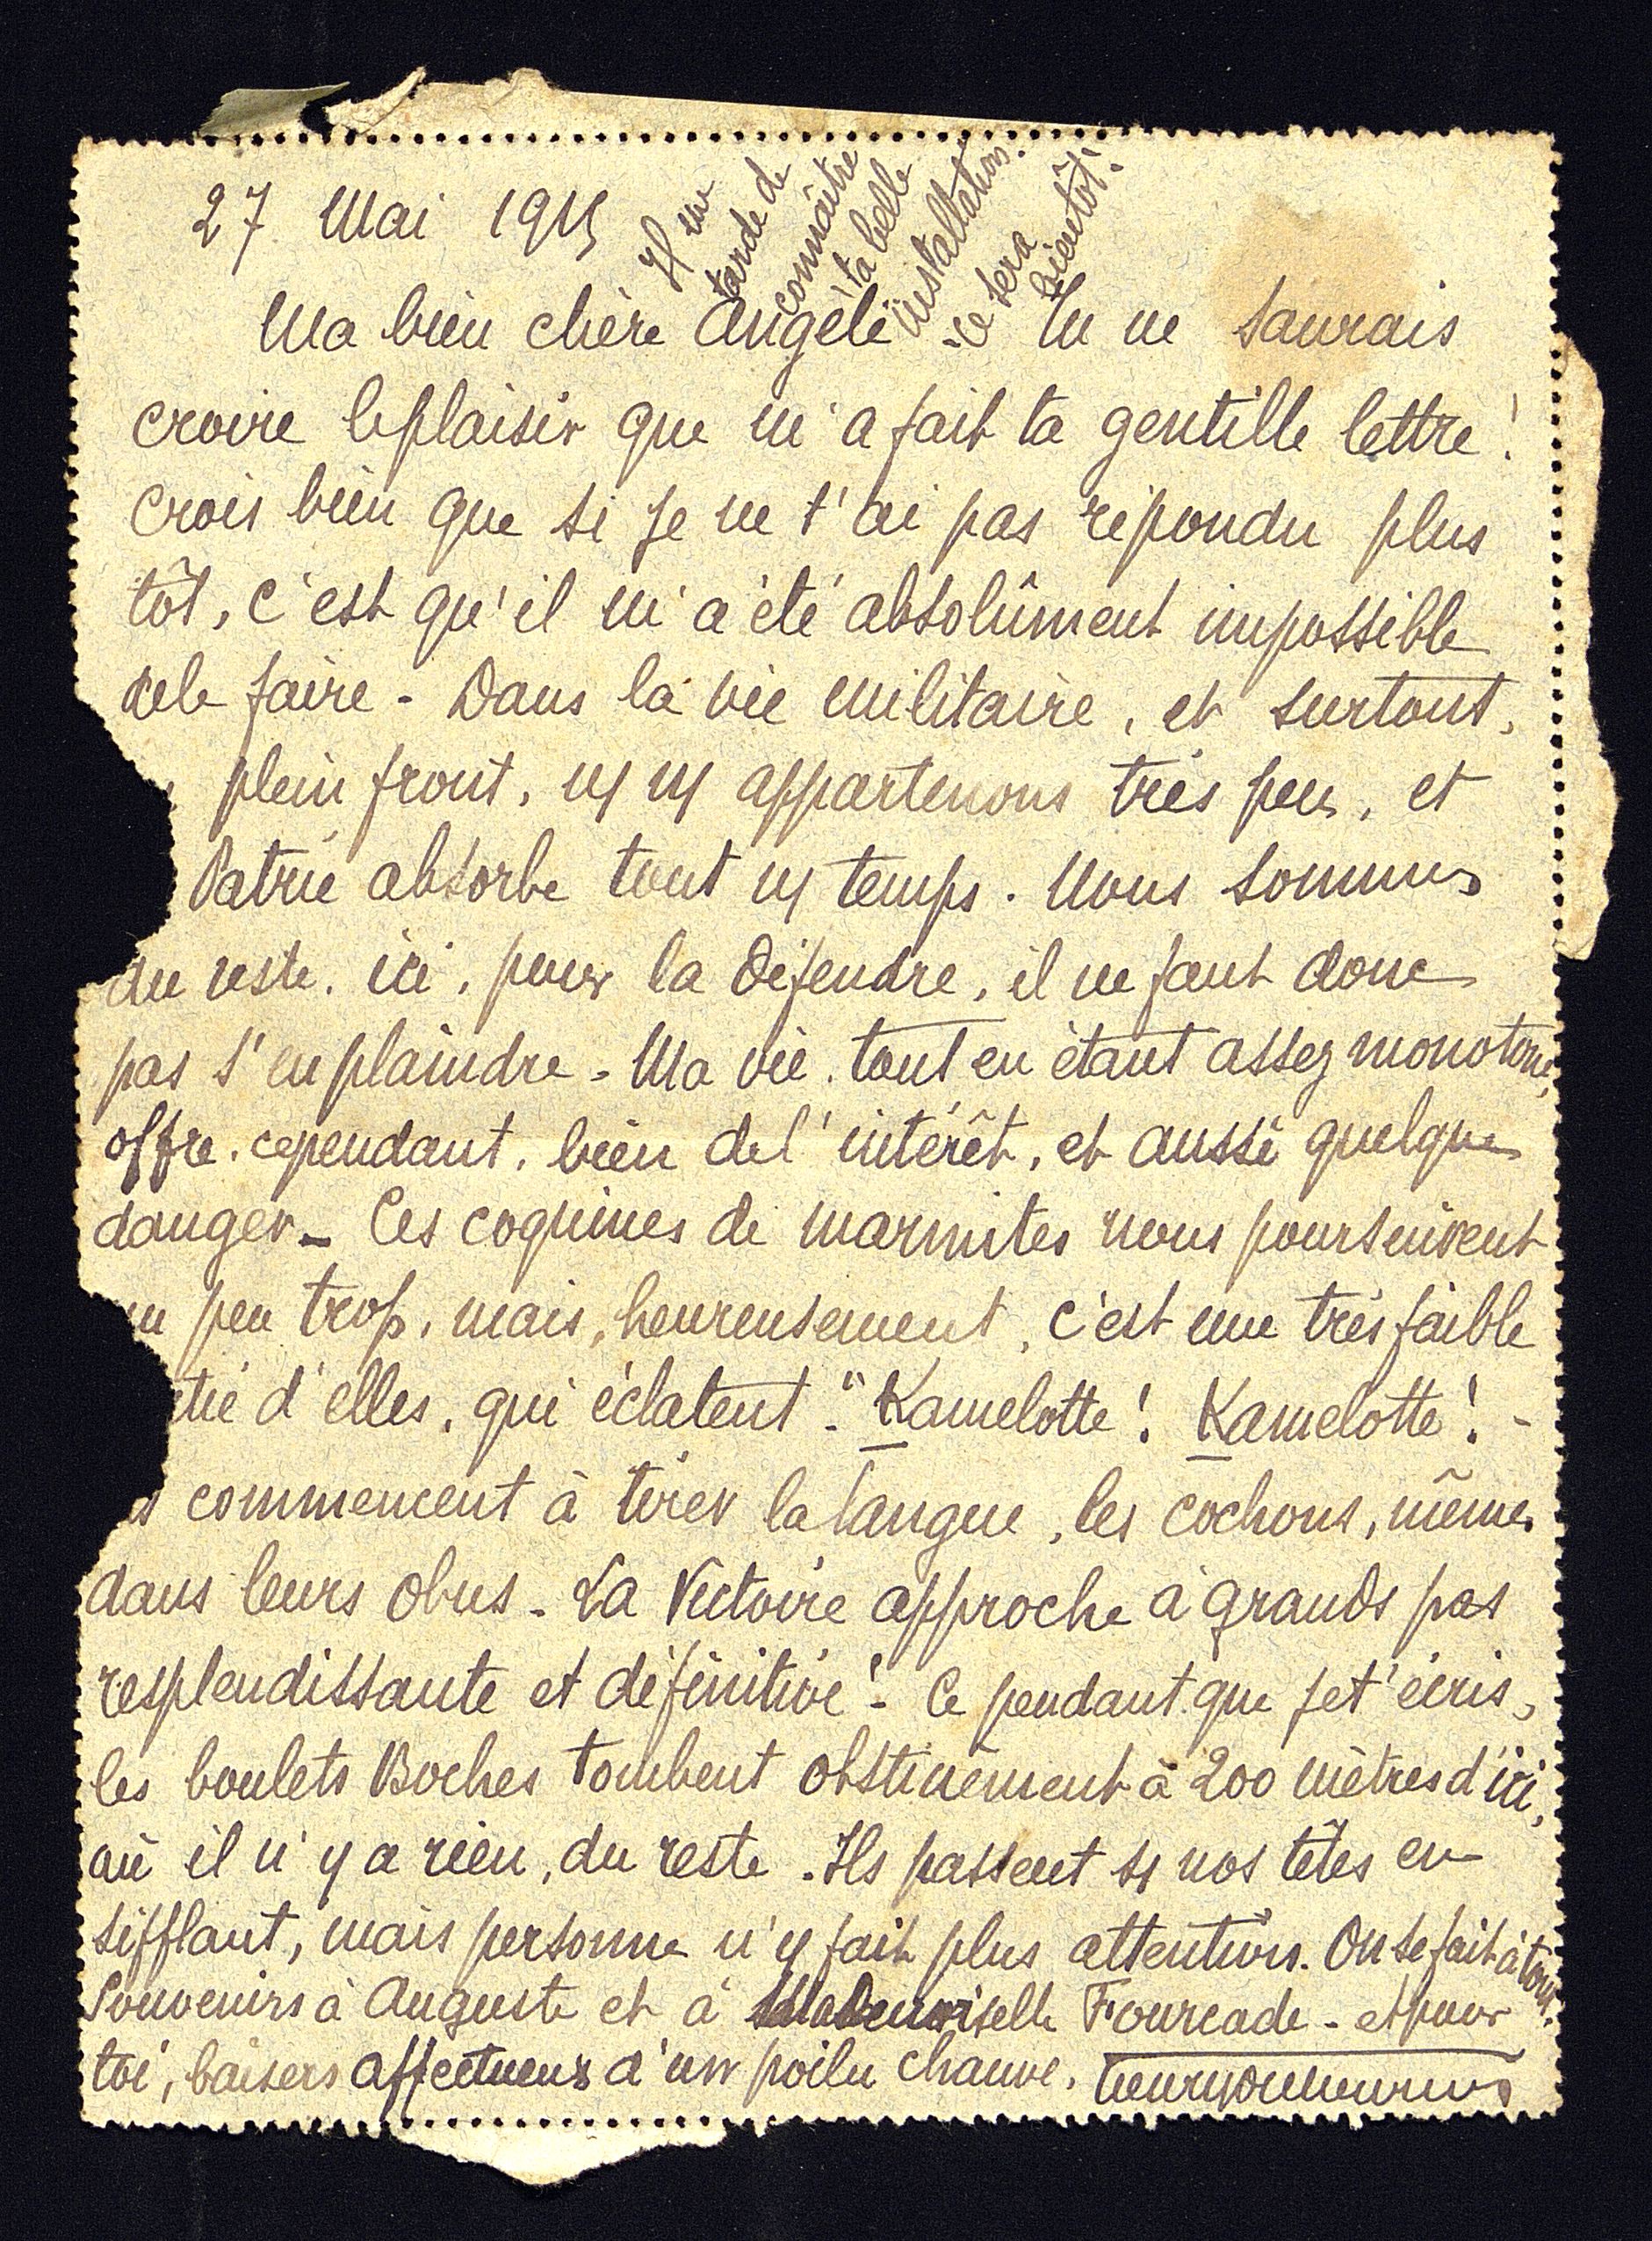 27 Mai 1915
Il me
tarde de
connaître
ta belle
installation.
- ce sera
bientôt!
Ma bien chère Angèle Tu ne saurais
croire le plaisir que m'a fait ta gentille lettre!
Crois bien que si je ne t'ai pas répondu plus
tôt, c'est qu'il m'a été absolûment impossible
de le faire - Dans la vie militaire, et surtout,
plein front, ns ns appartenons très peu, et
Patrie absorbe tout ns temps. Nous sommes
du reste, ici, pour la défendre, il ne faut donc
pas s'en plaindre - Ma vie, tout en étant assez monotone,
offre, cependant, bien de l'intérêt, et aussi quelque
danger - Ces coquines de marmites nous poursuivent
un peu trop, mais, heureusement, c'est une très faible
tié d'elles, qui éclatent - "Kamelotte! Kamelotte! -
s commencent à tirer la langue, les cochons, même,
dans leurs obus - La Victoire approche à grands pas
resplendissante et définitive! - Ce pendant que je t'écris,
les boulets Boches tombent obstinément à 200 mètres d'ici,
où il n'y a rien, du reste. Ils passent sr nos têtes en
sifflant, mais personne n'y fait plus attention. On se fait à tout.
Souvenirs à Auguste et à Mademoiselle Fourcade - et pour
toi, baisers affectueux d'un poilu chauve.